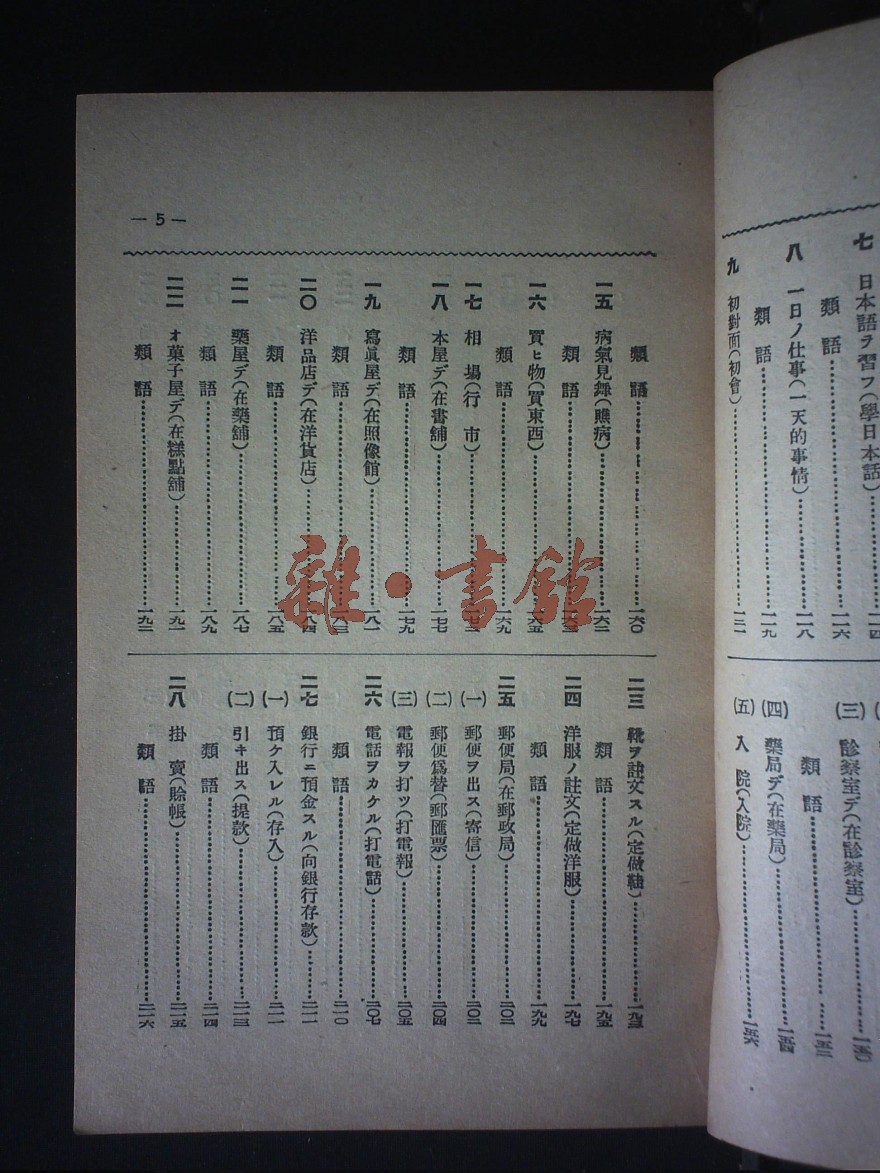 七 日本語ヲ習フ(學日本話)……一一四
類語……一一六
八 一日ノ仕事(一天的事情)……一一八
類語……一一九
九 初對面(初會)……一二一
(三) 診察室デ(在診察室)……一五〇
類語……一五二
(四) 藥局デ(在藥局)……一五四
(五) 入院(入院)……一五六
— 5 —
類語……一六〇
一五 病氣見舞(瞧病)……一六二
類語……一六三
一六 買ヒ物(買東西)……一六五
類語……一六九
一七 相場(行市)……
一八 本屋デ(在書舖)……一七七
類語……一七九
一九 寫眞屋デ(在照像館)……一八一
類語……一八三
二〇 洋品店デ(在洋貨店)……一八四
類語……一八五
二一 藥屋デ(在藥舖)……一八七
類語……一八九
二二 オ菓子屋デ(在糕點舖)……一九一
類語……一九二
二三 靴ヲ註文スル(定做鞋)……一九三
類語……一九五
二四 洋服ノ註文(定做洋服)……一九七
類語……一九九
二五 郵便局(在郵政局)……二〇二
(一) 郵便ヲ出ス(寄信)……二〇二
(二) 郵便爲替(郵匯票)……二〇四
(三) 電報ヲ打ツ(打電報)……二〇五
二六 電話ヲカケル(打電話)……二〇七
類語……二一〇
二七 銀行ニ預金スル(向銀行存款)……二一一
(一) 預ケ入レル(存入)……二一一
(二) 引キ出ス(提款)……二一三
類語……二一四
二八 掛賣(賒帳)……二一五
類語……二一六
雜·書館